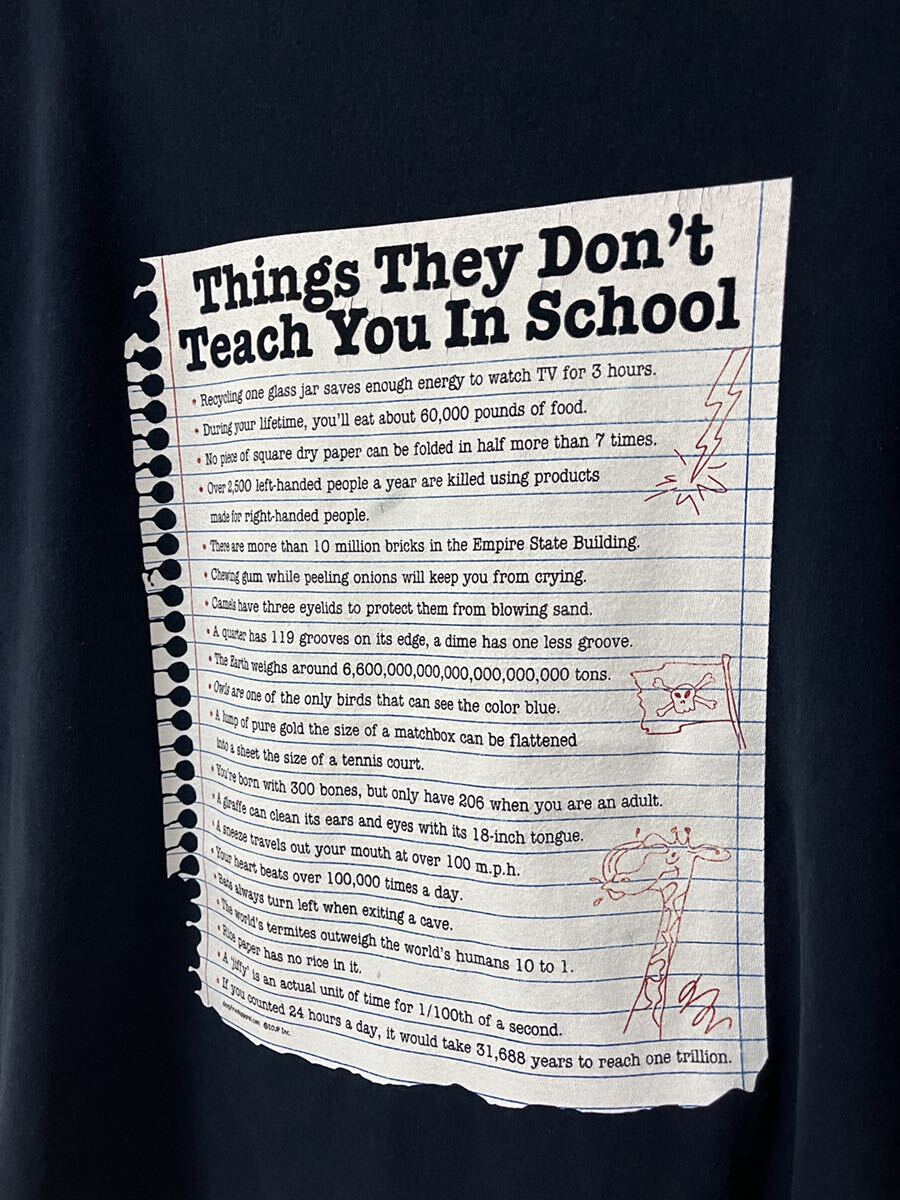 Things They Don't
Teach You In School
• Recycling one glass jar saves enough energy to watch TV for 3 hours.
• During your lifetime, you'll eat about 60,000 pounds of food.
• No piece of square dry paper can be folded in half more than 7 times.
• Over 2,500 left-handed people a year are killed using products
made for right-handed people.
• There are more than 10 million bricks in the Empire State Building.
• Chewing gum while peeling onions will keep you from crying.
• Camels have three eyelids to protect them from blowing sand.
• A quarter has 119 grooves on its edge, a dime has one less groove.
• The Earth weighs around 6,600,000,000,000,000,000,000 tons.
• Owls are one of the only birds that can see the color blue.
• A lump of pure gold the size of a matchbox can be flattened
into a sheet the size of a tennis court.
• You're born with 300 bones, but only have 206 when you are an adult.
• A giraffe can clean its ears and eyes with its 18-inch tongue.
• A sneeze travels out your mouth at over 100 m.p.h.
• Your heart beats over 100,000 times a day.
• Bats always turn left when exiting a cave.
• The world's termites outweigh the world's humans 10 to 1.
• Rice paper has no rice in it.
• A 'jiffy' is an actual unit of time for 1/100th of a second.
• If you counted 24 hours a day, it would take 31,688 years to reach one trillion.